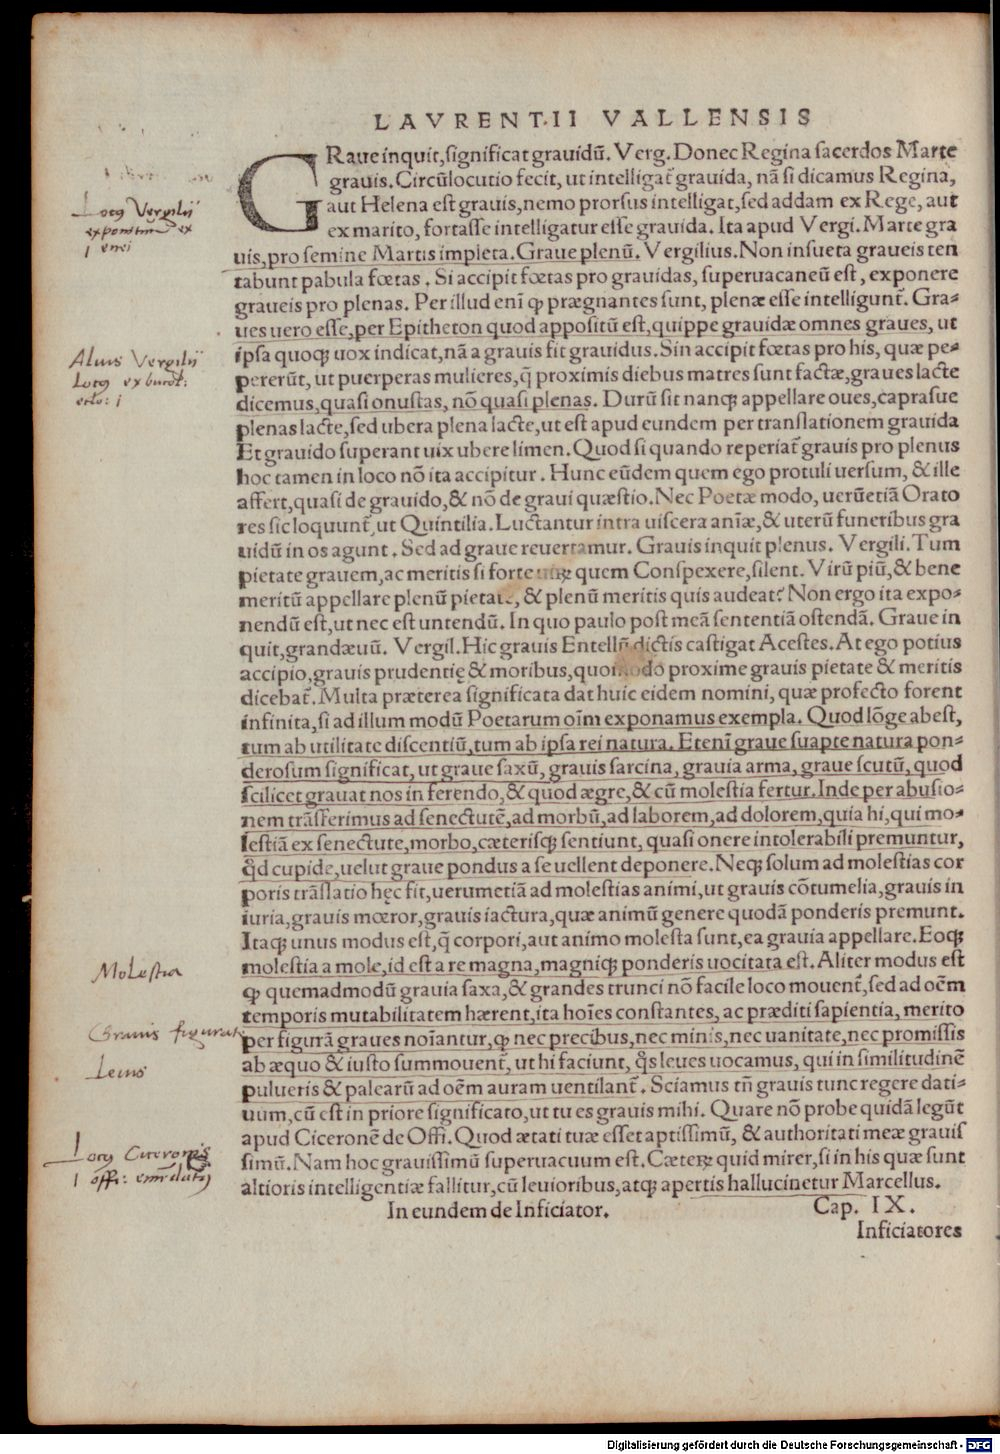 LAVRENTII VALLENSIS
GRaue inquit, significat grauidū. Verg. Donec Regina sacerdos Marte
grauis. Circūlocutio fecit, ut intelligat̄ grauida, nā si dicamus Regina,
aut Helena est grauis, nemo prorsus intelligat, sed addam ex Rege, aut
ex marito, fortasse intelligatur esse grauida. Ita apud Vergi. Marte gra
uis, pro semine Martis impleta. Graue plenū. Vergilius. Non insueta graueis ten
tabunt pabula fœtas. Si accipit fœtas pro grauidas, superuacaneū est, exponere
graueis pro plenas. Per illud enī ꝙ prægnantes sunt, plenæ esse intelligunt̄. Gra-
ues uero esse, per Epitheton quod appositū est, quippe grauidæ omnes graues, ut
ipsa quoqꝫ uox indicat, nā a grauis fit grauidus. Sin accipit fœtas pro his, quæ pe-
pererūt, ut puerperas mulieres, q̄ proximis diebus matres sunt factæ, graues lacte
dicemus, quasi onustas, nō quasi plenas. Durū sit nanqꝫ appellare oues, caprasue
plenas lacte, sed ubera plena lacte, ut est apud eundem per translationem grauida
Et grauido superant uix ubere limen. Quod si quando reperiat̄ grauis pro plenus
hoc tamen in loco nō ita accipitur. Hunc eūdem quem ego protuli uersum, & ille
affert, quasi de grauido, & nō de graui quæstio. Nec Poetæ modo, uerūetiā Orato
res sic loquunt̄, ut Quintilia. Luctantur intra uiscera aniæ, & uterū funeribus gra
uidū in os agunt. Sed ad graue reuertamur. Grauis inquit plenus. Vergili. Tum
pietate grauem, ac meritis si forte uirꝫ quem Conspexere, silent. Virū piū, & bene
meritū appellare plenū pietate, & plenū meritis quis audeat? Non ergo ita expo-
nendū est, ut nec est untendū. In quo paulo post meā sententiā ostendā. Graue in
quit, grandæuū. Vergil. Hic grauis Entellū dictis castigat Acestes. At ego potius
accipio, grauis prudentię & moribus, quomodo proxime grauis pietate & meritis
dicebat̄. Multa præterea significata dat huic eidem nomini, quæ profecto forent
infinita, si ad illum modū Poetarum oīm exponamus exempla. Quod lōge abest,
tum ab utilitate discentiū, tum ab ipsa rei natura. Etenī graue suapte natura pon-
derosum significat, ut graue saxū, grauis sarcina, grauia arma, graue scutū, quod
scilicet grauat nos in ferendo, & quod ægre, & cū molestia fertur. Inde per abusio-
nem trāsferimus ad senectutē, ad morbū, ad laborem, ad dolorem, quia hi, qui mo-
lestiā ex senectute, morbo, cæterisqꝫ sentiunt, quasi onere intolerabili premuntur,
qd̄ cupide, uelut graue pondus a se uellent deponere. Neqꝫ solum ad molestias cor
poris trāslatio hęc fit, uerumetiā ad molestias animi, ut grauis cōtumelia, grauis in
iuria, grauis mœror, grauis iactura, quæ animū genere quodā ponderis premunt.
Itaqꝫ unus modus est, q̄ corpori, aut animo molesta sunt, ea grauia appellare. Eoqꝫ
molestia a mole, id est a re magna, magniqꝫ ponderis uocitata est. Aliter modus est
ꝙ quemadmodū grauia saxa, & grandes trunci nō facile loco mouent̄, sed ad oēm
temporis mutabilitatem hærent, ita hoīes constantes, ac præditi sapientia, merito
per figurā graues noīantur, ꝙ nec precibus, nec minis, nec uanitate, nec promissis
ab æquo & iusto summouent̄, ut hi faciunt, q̄s leues uocamus, qui in similitudinē
pulueris & palearū ad oēm auram uentilant̄. Sciamus tn̄ grauis tunc regere dati-
uum, cū est in priore significato, ut tu es grauis mihi. Quare nō probe quidā legūt
apud Ciceronē de Offi. Quod ætati tuæ esset aptissimū, & authoritati meæ grauis
simū. Nam hoc grauissimū superuacuum est. Cæterꝫ quid mirer, si in his quæ sunt
altioris intelligentiæ fallitur, cū leuioribus, atqꝫ apertis hallucinetur Marcellus.
In eundem de Inficiator. Cap. IX.
Inficiatores
Locus Vergilij
exponitur ex
i enei
Aluis Vergilij
Locus ex bucol:
eclo: i
Molestia
Grauis figurate
Leuis
Locus Ciceronis
i offi: emēdatus
Digitalisierung gefördert durch die Deutsche Forschungsgemeinschaft - DFG